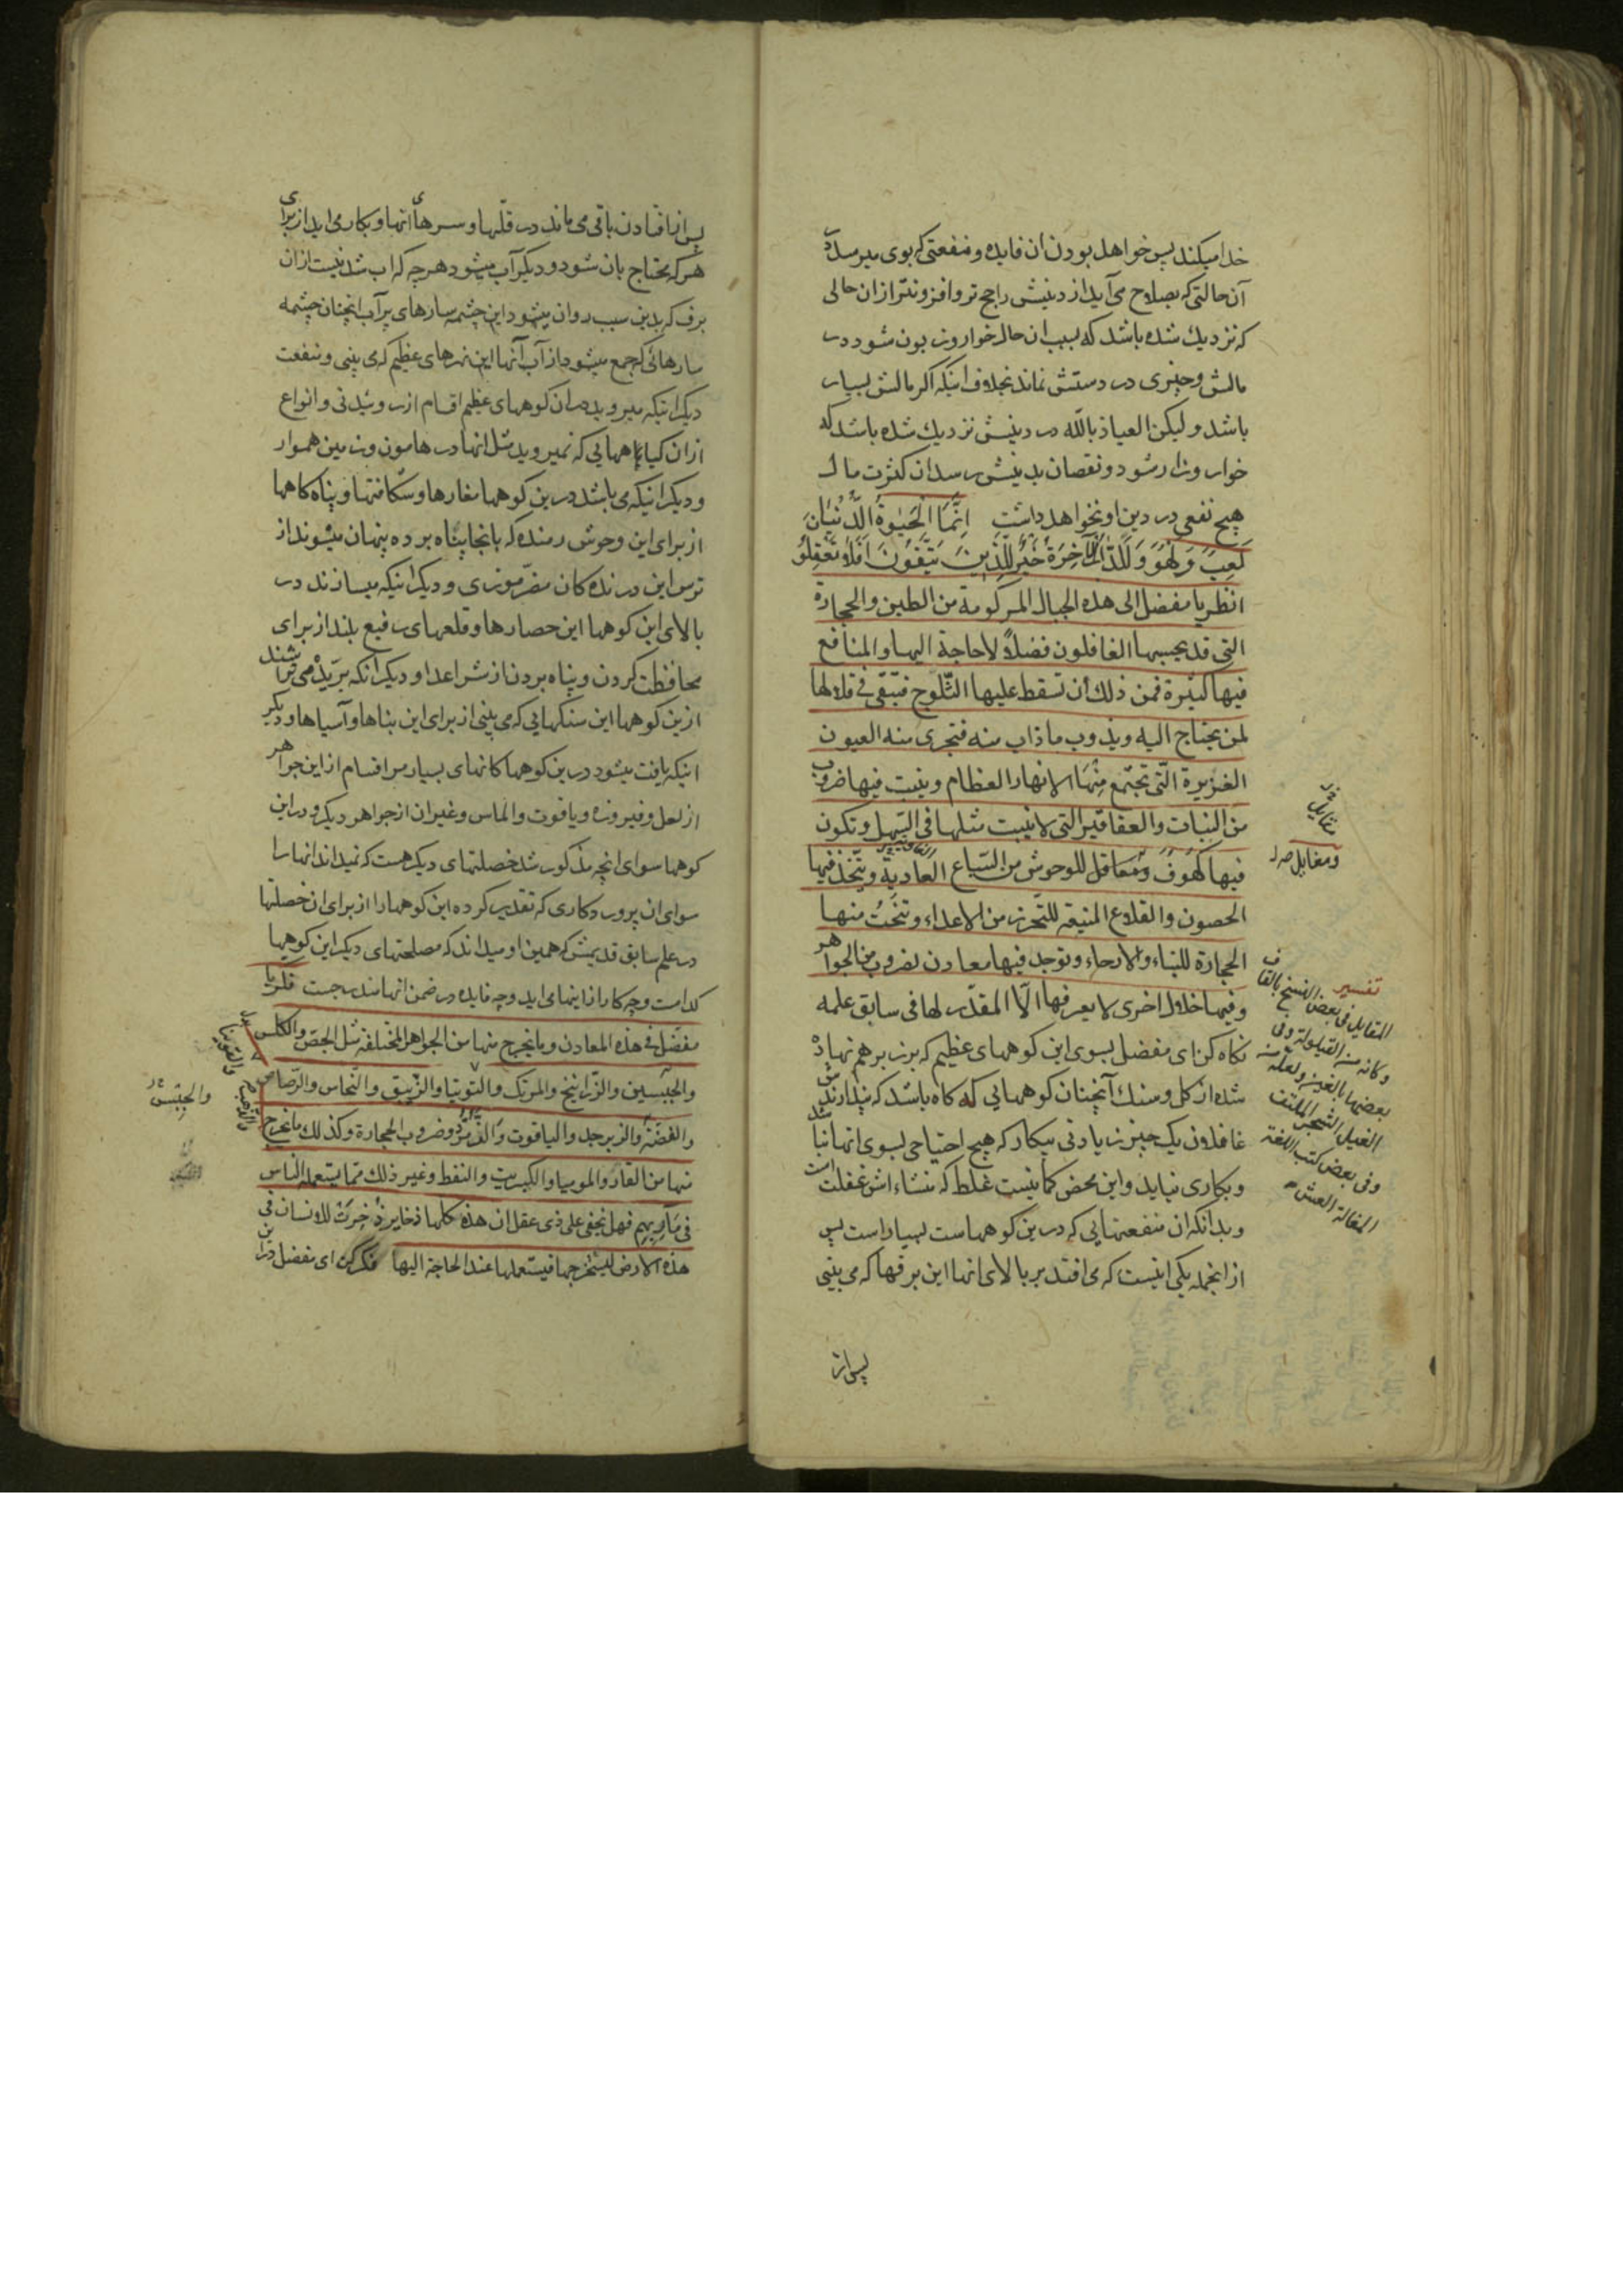 خدا میکند پس خواهد بودن ان فایده و منفعتی که بوی میرسد در
آن حالتی که بصلاح می‌آید از دینش راجح تر و افزونتر از ان حالی
که نزدیک شده باشد که بسبب ان حال خوار و زبون شود در
مالش و چیزی در دستش نماند بخلاف اینکه اکر مالش بسیار
باشد و لیکن العیاذ بالله در دینش نزدیک شده باشد که
خوار و زار شود و نقصان بدینش رسد ان کثرت مال
هیچ نفعی در دین او نخواهد داشت اِنَّمَا الْحَیٰوةُ الدُّنْیَا
لَعِبٌ وَ لَهْوٌ وَ لَلدَّارُ الْآخِرَةُ خَیْرٌ لِلَّذِینَ یَتَّقُونَ اَفَلَا تَعْقِلُونَ
انظر یا مفضل الی هذه الجبال المرکومة من الطین والحجارة
التی قد یحسبها الغافلون فضلاً لا حاجة الیها والمنافع
فیها کثیرة فمن ذلک أن تسقط علیها الثلوج فتبقی فی قلالها
لمن یحتاج الیه ویذوب ما ذاب منه فتجری منه العیون
الغزیرة الّتی تجتمع مِنْهَا الانهار العظام وینبت فیها ضروب
من النبات والعقاقیر التی لا ینبت مثلها فی السهل وتکون
فیها کهوف ومعاقل للوحوش من السباع العادیة ویتّخذ فیها
الحصون والقلاع المنیعة للتحرز من الاعداء وتنحت منها
الحجارة للبناء والارحاء وتوجد فیها معادن لضروب من الجواهر
وفیها خلال اخری لا یعرفها الّا المقدّر لها فی سابق علمه
نکاه کن ای مفضل بسوی این کوههای عظیم که برزبر هم نهاده
شده از کل و سنک آنچنان کوههایی که کاه باشد که پندارندش
غافلون یک چیز زیادتی بیکار که هیچ احتیاجی بسوی انها نباشد
و بکاری نیاید و این محض کمانیست غلط که منشاء اش غفلت است
و بدانکه ان منفعتهایی که درین کوههاست بسیار است پس
از انجمله یکی اینست که می افتد بر بالای انها این برفها که می بینی
پس از
ومقابل صح ل
تفسیر
المقایل فی بعض النسخ بالقاف
وکانه من القیلولة وفی
بعضها بالغین ولعله من
الغیل الشجر الملتف
وفی بعض کتب اللغة
المغالة العش
پس از افتادن باقی می ماند در قلّها و سرهای انها و بکار می اید از برای
هر که محتاج بان شود و دیکر آب میشود هر چه که اب شدنیست از ان
برف که بدین سبب روان میشود این چشمه سارهای پر آب انچنان چشمه
سارهائی که جمع میشود از آب آنها این نهرهای عظیم که می بینی و منفعت
دیکر اینکه میروید در ان کوههای عظیم اقسام از روئیدنی و انواع
از ان کیاهایی که نمیروید مثل انها در هامون و زمین هموار
و دیکر اینکه می باشد درین کوهها مغارها و شکافتها و پناه کاهها
از برای این وحوش رمنده که بانجا پناه برده پنهان میشوند از
ترس این درنده کان مضرّ موذی و دیکر اینکه میسازند در
بالای این کوهها این حصارها و قلعهای رفیع بلند از برای
محافظت کردن و پناه بردن از شر اعدا و دیکر انکه بریده می تراشند
ازین کوهها این سنکهایی که می بینی از برای این بناها و آسیاها و دیکر
اینکه یافت میشود درین کوهها کانهای بسیار مر اقسام از این جواهر
از لعل و فیروزه و یاقوت و الماس و غیر ان از جواهر دیکر و در این
کوهها سوای انچه مذکور شد خصلتهای دیکر هست که نمیداند انها را
سوای ان پروردکاری که تقدیر کرده این کوهها را از برای ان خصلتها
در علم سابق قدیمش که همین او میداند که مصلحتهای دیکر این کوهها
کدامست و چه کار از اینها می اید و چه فایده در ضمن انها مندرجست فکر یا
مفضل فی هذه المعادن وما یخرج منها من الجواهر المختلفة مثل الجصّ والکلس
والجبسین والزرانیخ والمرتک والتوتیا والزیبق والنحاس والرصاص
والفضة والزبرجد والیاقوت والزمرّد وضروب الحجارة وکذلک ما یخرج
منها من القار والمومیا والکبریت والنفط وغیر ذلک مما یستعمله الناس
فی مآربهم فهل یخفی علی ذی عقل ان هذه کلها ذخایر ذُخِرَتْ للانسان فی
هذه الارض لیستخرجها فیستعملها عند الحاجة الیها فکر کن ای مفضل درین
والجبسن